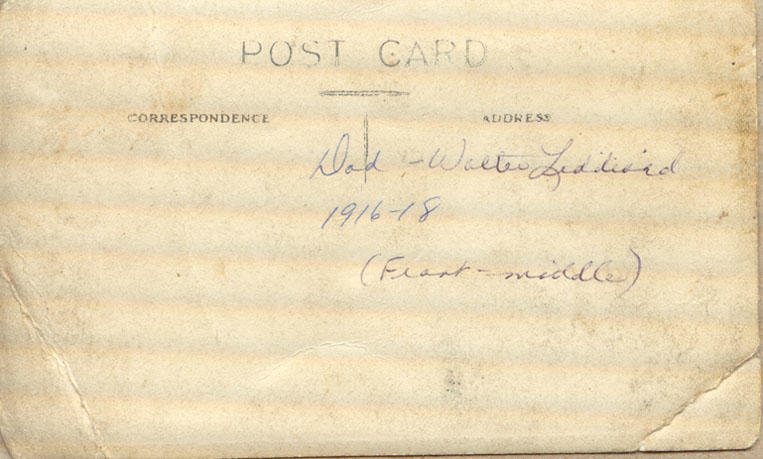 POST CARD
CORRESPONDENCE
ADDRESS
Dad - Walter Liddiard
1916-18
(Front - middle)